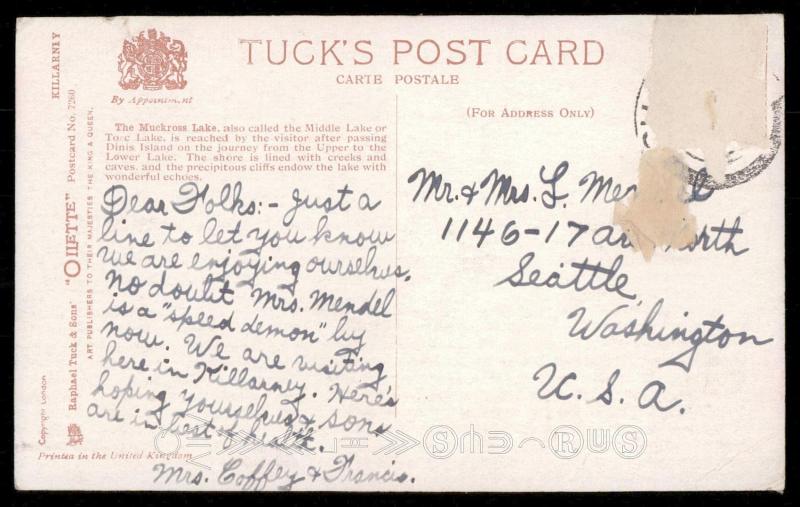 TUCK'S POST CARD
CARTE POSTALE
By Appointment
(FOR ADDRESS ONLY)
KILLARNEY
"OILETTE" Postcard No. 7260
Raphael Tuck & Sons'
ART PUBLISHERS TO THEIR MAJESTIES THE KING & QUEEN.
Copyright London
Printed in the United Kingdom
The Muckross Lake, also called the Middle Lake or
Torc Lake, is reached by the visitor after passing
Dinis Island on the journey from the Upper to the
Lower Lake. The shore is lined with creeks and
caves, and the precipitous cliffs endow the lake with
wonderful echoes.
Dear Folks:- Just a
line to let you know
we are enjoying ourselves.
No doubt Mrs. Mendel
is a "speed demon" by
now. We are visiting
here in Killarney. Here's
hoping yourselves & sons
are in best of health.
Mrs. Coffey & Francis.
Mr. & Mrs. L.
1146-17 North
Seattle,
Washington
U. S. A.